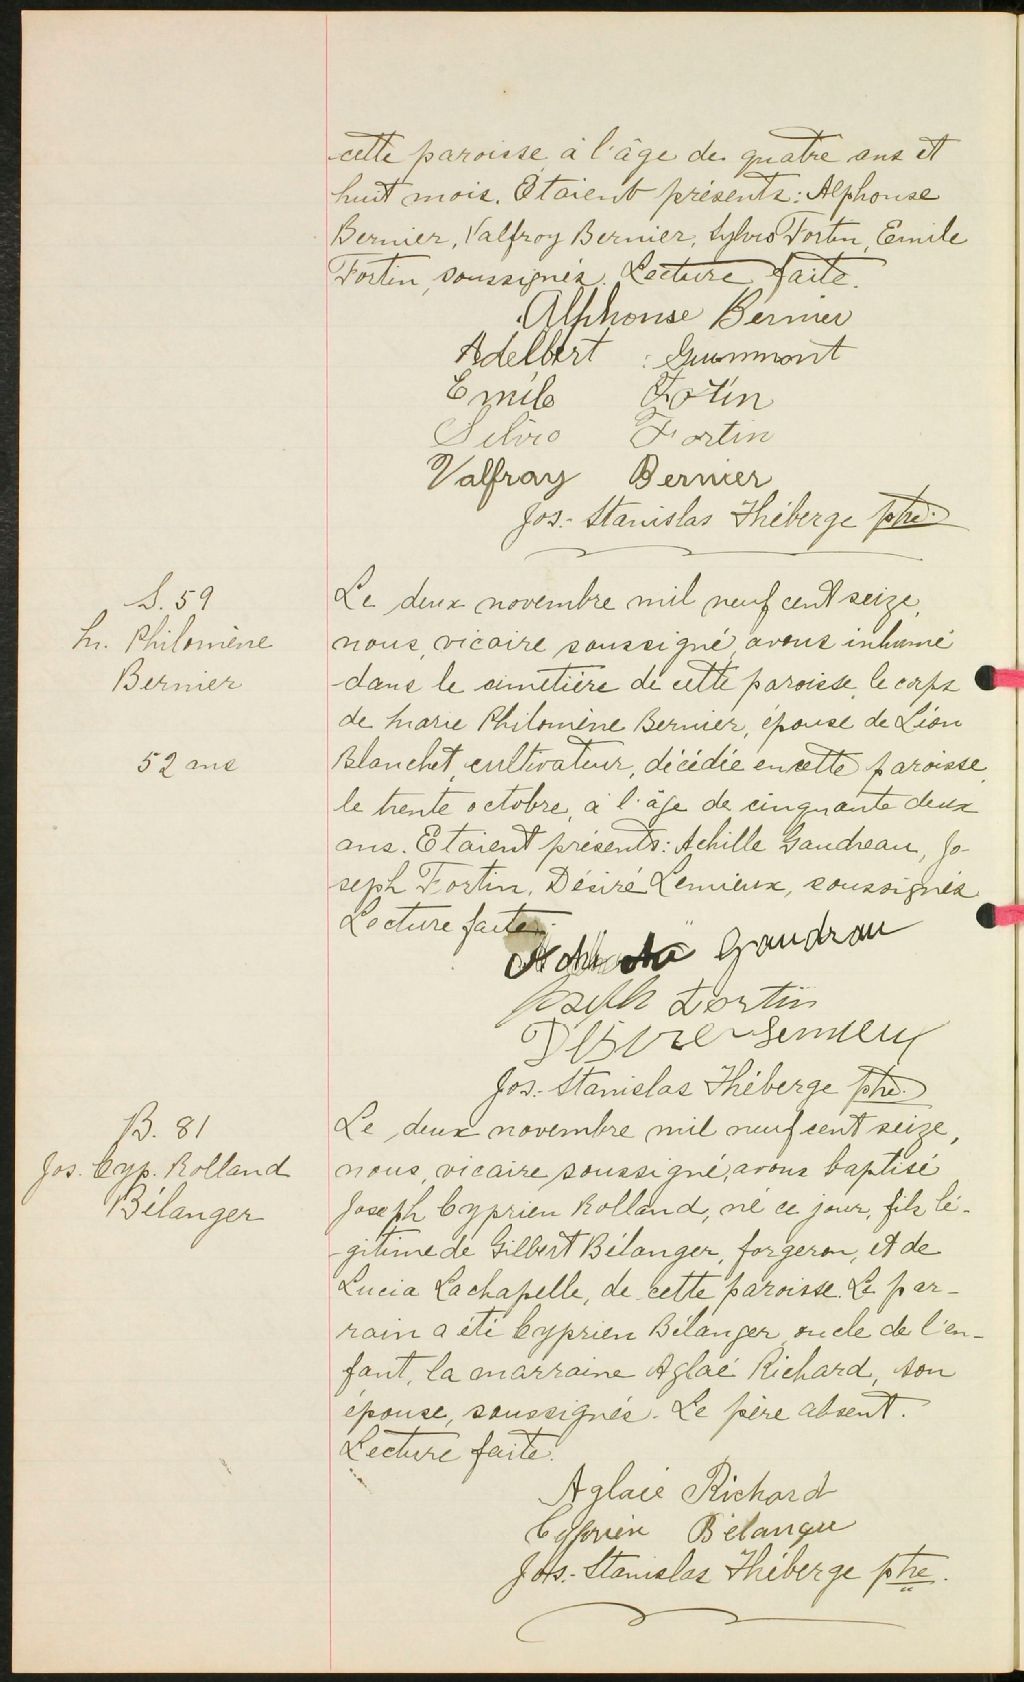 cette paroisse, à l'âge de quatre ans et
huit mois. Étaient présents: Alphonse
Bernier, Valfroy Bernier, Sylvio Fortin, Emile
Fortin, soussignés. Lecture faite.
Alphonse Bernier
Adelbert Guimmont
Emile Fotin
Silvio Fortin
Valfray Bernier
Jos.-Stanislas Théberge ptre.
S. 59
M. Philomène
Bernier
52 ans
Le deux novembre mil neuf cent seize,
nous, vicaire soussigné, avons inhumé
dans le cimetière de cette paroisse, le corps
de Marie Philomène Bernier, épouse de Léon
Blanchet, cultivateur, décédée en cette paroisse,
le trente octobre, à l'âge de cinquante deux
ans. Etaient présents: Achille Gaudreau, Jo-
seph Fortin, Désiré Lemieux, soussignés.
Lecture faite.
Gaudrau
Joseph Fortin
Désire Lemieux
Jos.-Stanislas Théberge ptre.
B. 81
Jos. Cyp. Rolland
Bélanger
Le deux novembre mil neuf cent seize,
nous, vicaire soussigné, avons baptisé
Joseph Cyprien Rolland, né ce jour, fils lé-
gitime de Gilbert Bélanger, forgeron, et de
Lucia Lachapelle, de cette paroisse. Le par-
rain a été Cyprien Bélanger, oncle de l'en-
fant, la marraine Aglaé Richard, son
épouse, soussignés. Le père absent.
Lecture faite.
Aglaié Richard
Cyprien Bélanger
Jos.-Stanislas Théberge ptre.